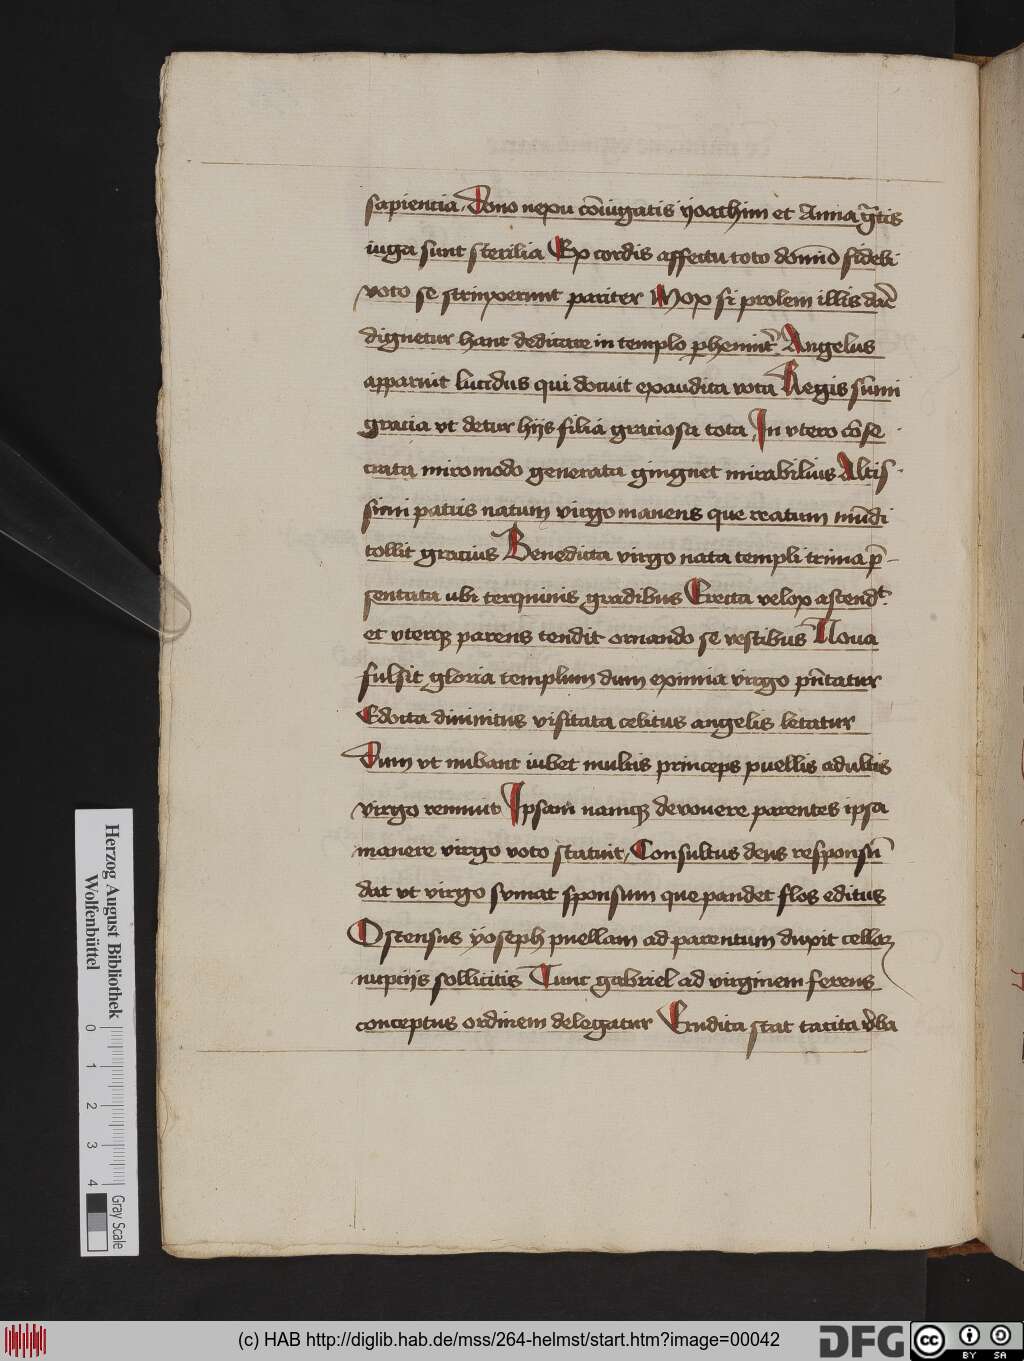 sapiencia. Dono nexu cōiugatis yoachim et Anna gr̄tis
iuga sunt sterilia Ex cordis affectu toto domīo fideli
voto se strinxerunt pariter Mox si prolem illis dar̄e
dignetur hanc dedicare in templo phenniter̄. Angelus
apparuit lucidus qui docuit exaudita vota Regis sūmi
gracia vt detur hijs filia graciosa tota, In vtero cōse
crata miromodo generata gingnet mirabilius Altis
simi patris natum virgo manens que reatum mūdi
tollit gracius Benedicta virgo nata templi trina p̄
sentata ubi terquinis gradibus Erecta velox ascendt.
et vterqꝫ parens tendit ornando se vestibus Noua
fulsit gloria templum dum eximia virgo pn̄tatur
Edocta diuinitus visitata celitus angelis letatur
Cum vt nubant iubet multis princeps puellis adultis
virgo rennuit Ipsam namqꝫ devouere parentes ipsa
manere virgo voto statuit, Consultus deus respōnsū
dat vt virgo sumat sponsum que pandet flos editus
Ostensus yoseph puellam ad parentum duxit cellaꝝ
nupcijs sollicitis Tunc gabriel ad virginem ferens
conceptus ordinem delegatur Erudita stat tacita v̄ba
Herzog August Bibliothek
Wolfenbüttel
0 1 2 3 4
Gray Scale
(c) HAB http://diglib.hab.de/mss/264-helmst/start.htm?image=00042
DFG
cc BY SA